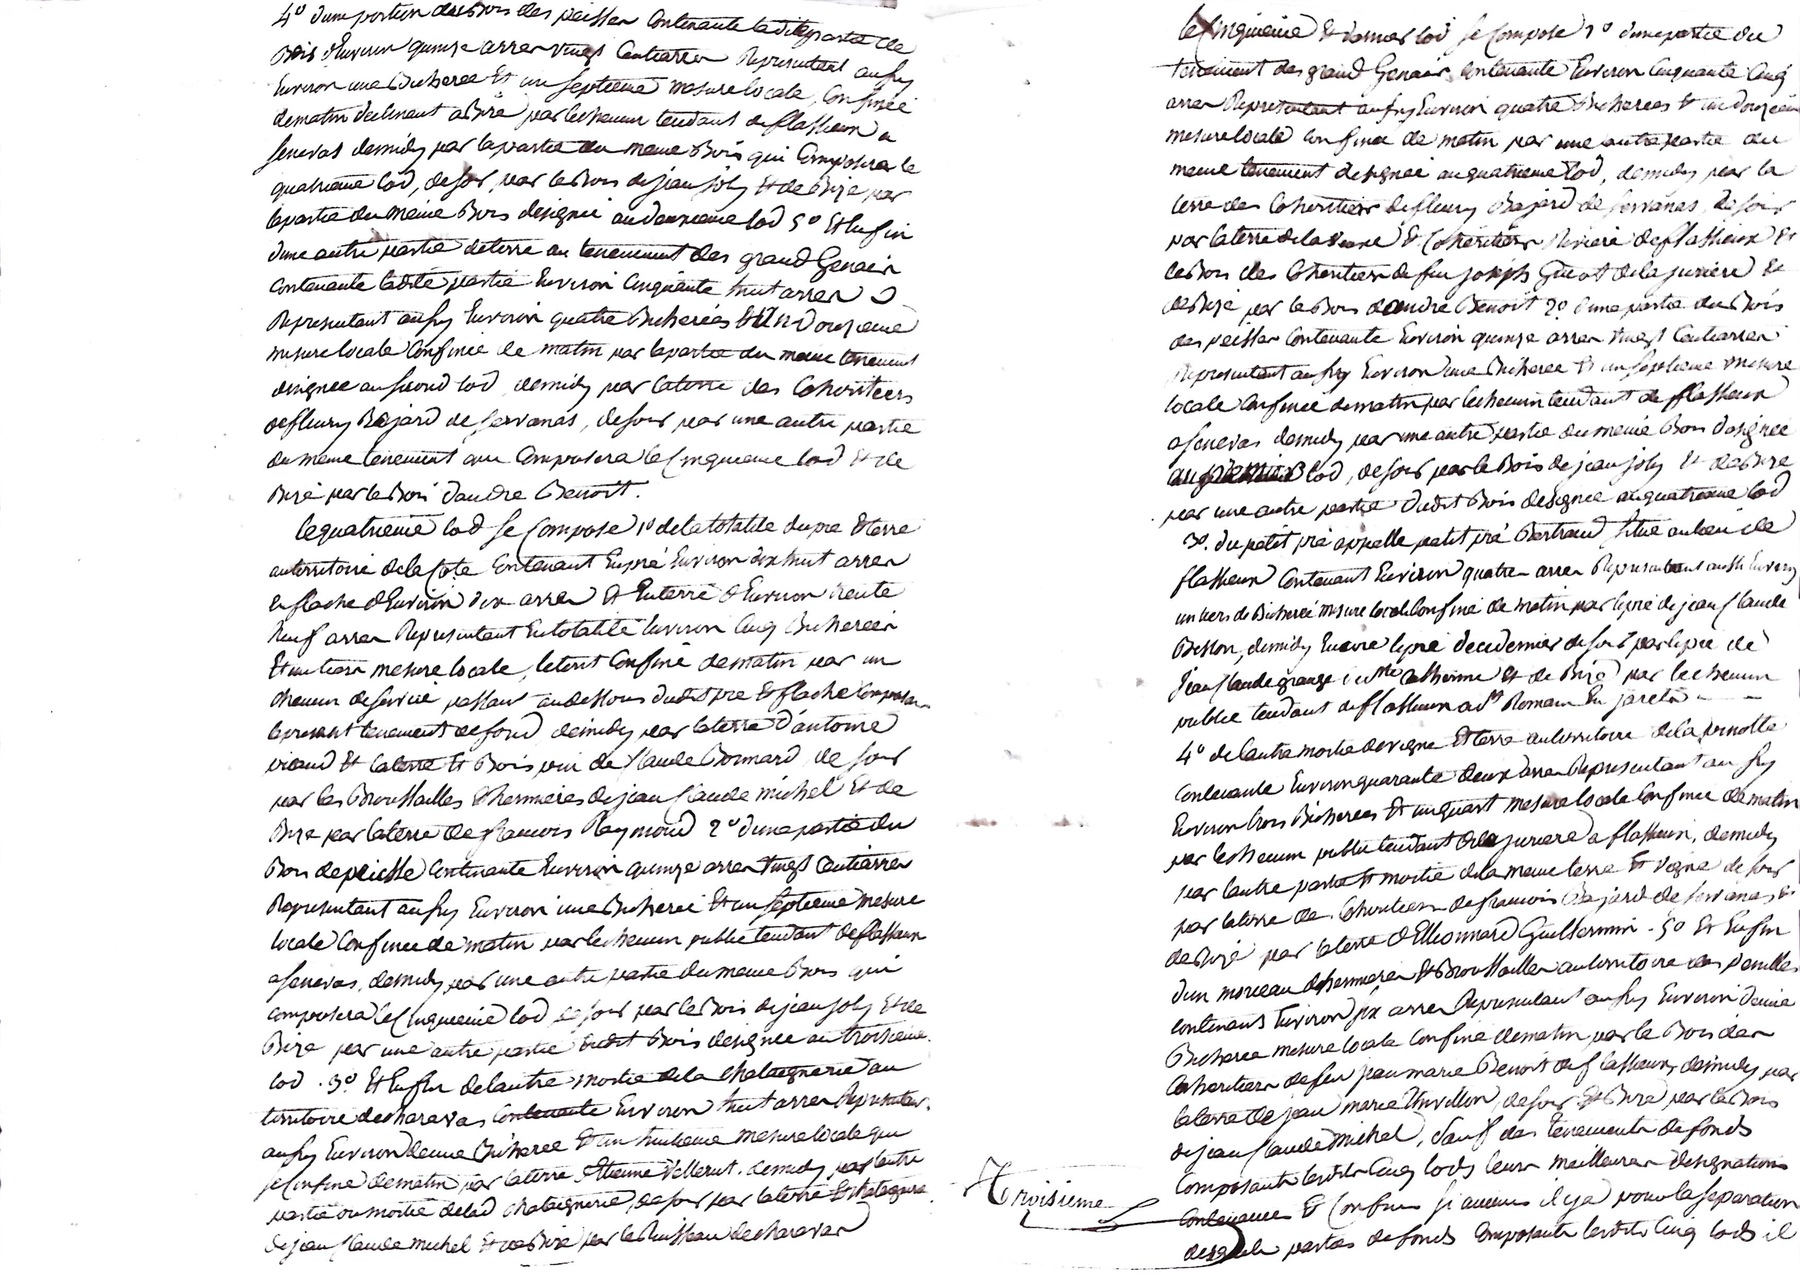 4º d'une portion du Bois des peisser Contenante ladite partie de
Bois d'Environ quinze arres vingt Centiarres Representant aussy
Environ une Bicherée Et un septieme mesure locale, Confinée
de matin declinant a Bize par le chemin tendant de flassieux a
seneras de midy par la partie du meme Bois qui Composera le
quatrieme lod, de soir par le Bois de jean joly Et de Bize par
la partie du meme Bois designée au deuxieme lod 5º Et Enfin
d'une autre partie de terre au tenement des grand Genair
contenante ladite partie Environ Cinquante huit arres
Representant aussy Environ quatre Bicherées Et Un Douzieme
mesure locale Confinée de matin par la partie du meme tenement
designée au second lod, de midy par la terre des Coheritiers
de fleury Bajard de servanas, de soir par une autre partie
du meme tenement qui Composera le Cinquieme lod Et de
Bize par le Bois d'andre Benoit.
le quatrieme lod se Compose 1º de la totalité du pré Et terre
au territoire de la Cote Contenant En pré Environ dix huit arres
En flache d'Environ dix arres Et En terre d'Environ trente
neuf arres Representant En totalité Environ Cinq Bicherées
Et un tiers mesure locale, le tout Confiné de matin par un
chemin de service passant au dessous dudit pré Et flache Composan
le present tenement de fond, de midy par la terre d'antoine
viaud Et la terre Et Bois pin de Claude Bonnard, de soir
par les Broussailles Et hermeres de jean Claude michel Et de
Bize par la terre de francois Raymond 2º d'une partie du
Bois de peisse Contenante Environ quinze arres vingt Centiarres
Representant aussy Environ une Bicherée Et un septieme mesure
locale Confinée de matin par le chemin public tendant de flassieux
a seneras, de midy par une autre partie du meme Bois qui
composera le Cinquieme lod de soir par le Bois de jean joly Et de
Bize par une autre partie dudit Bois designée au troisieme
lod. 3º Et Enfin de l'autre moitié de la Chataignerie au
territoire de charavas Contenante Environ huit arres Representant
aussy Environ demie Bicherée Et un huitieme mesure locale qui
se Confine de matin par la terre d'Etienne Vellerut, de midy par l'autre
partie ou moitié de lad chataignerie, de soir par la terre Et chataignerie
de jean Claude michel Et de Bize par le Ruisseau de charavas
le Cinquieme Et dernier lod se Compose 1º d'une partie du
tenement des grand Genair Contenante Environ Cinquante Cinq
arres Representant aussy Environ quatre Bicherées Et un douzieme
mesure locale Confinée de matin par une autre partie du
meme tenement designée au quatrieme lod, de midy par la
terre des Coheritiers de fleury Bajard de servanas, de soir
par la terre de la veuve Et Coheritiers Riviere de flassieux Et
le Bois des Coheritiers de feu joseph Guiot de la juriere Et
de Bize par le Bois d'andre Benoit 2º d'une partie du Bois
des peisser Contenante Environ quinze arres vingt Centiarres
Representant aussy Environ une Bicherée Et un septieme mesure
locale Confinée de matin par le chemin tendant de flassieux
a seneras de midy par une autre partie du meme Bois designée
au premier lod, de soir par le Bois de jean joly Et de Bize
par une autre partie dudit Bois designée au quatrieme lod
3º. du petit pré appellé petit pré Bertrand situé au lieu de
flassieux Contenant Environ quatre arres Representant aussi Environ
un tiers de Bicherée mesure locale Confiné de matin par le pré de jean Claude
Besson, de midy Encore le pré de ce dernier de soir par le pré de
jean Claude grange Catherine Et de Bize par le chemin
public tendant de flassieux a st Romain En jarets
4º de l'autre moitié de vigne Et terre au territoire de la pinolte
Contenante Environ quarante deux arres Representant aussy
Environ trois Bicherées Et un quart mesure locale Confinée de matin
par le chemin public tendant de la juriere a flassieux, de midy
par l'autre partie Et moitié de la meme terre Et vigne de soir
par la terre des Coheritiers de francois Bajard de servanas, Et
de Bize par la terre d'Ellionnard Guillermin. 5º Et Enfin
d'un morceau d'hermeres Et Broussailles au territoire des
contenant Environ six arres Representant aussy Environ demie
Bicherée mesure locale Confiné de matin par le Bois des
Coheritiers de feu jean marie Benoit de flassieux, de midy par
la terre de jean marie Thivillon, de soir Et Bize par le Bois
de jean Claude Michel, sauf des tenements de fonds
Composants lesdits Cinq lods leurs meilleures designations
Contenances Et Confins si aucuns il y a pour la separation
desquels parties de fonds Composants lesdits Cinq lods il
Troisieme